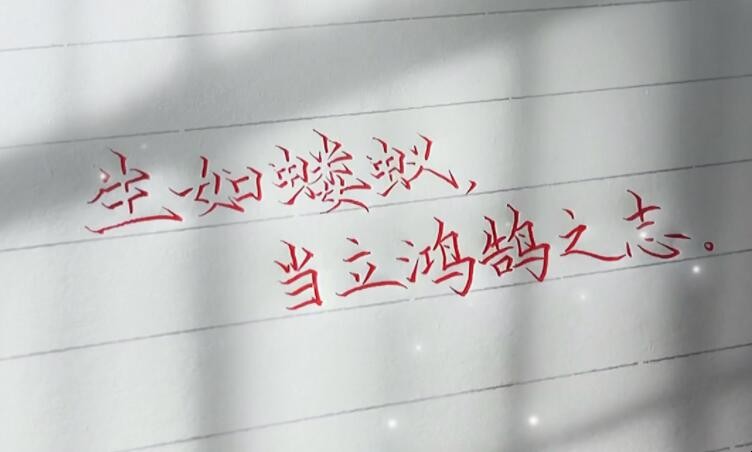 生如蝼蚁，
当立鸿鹄之志。